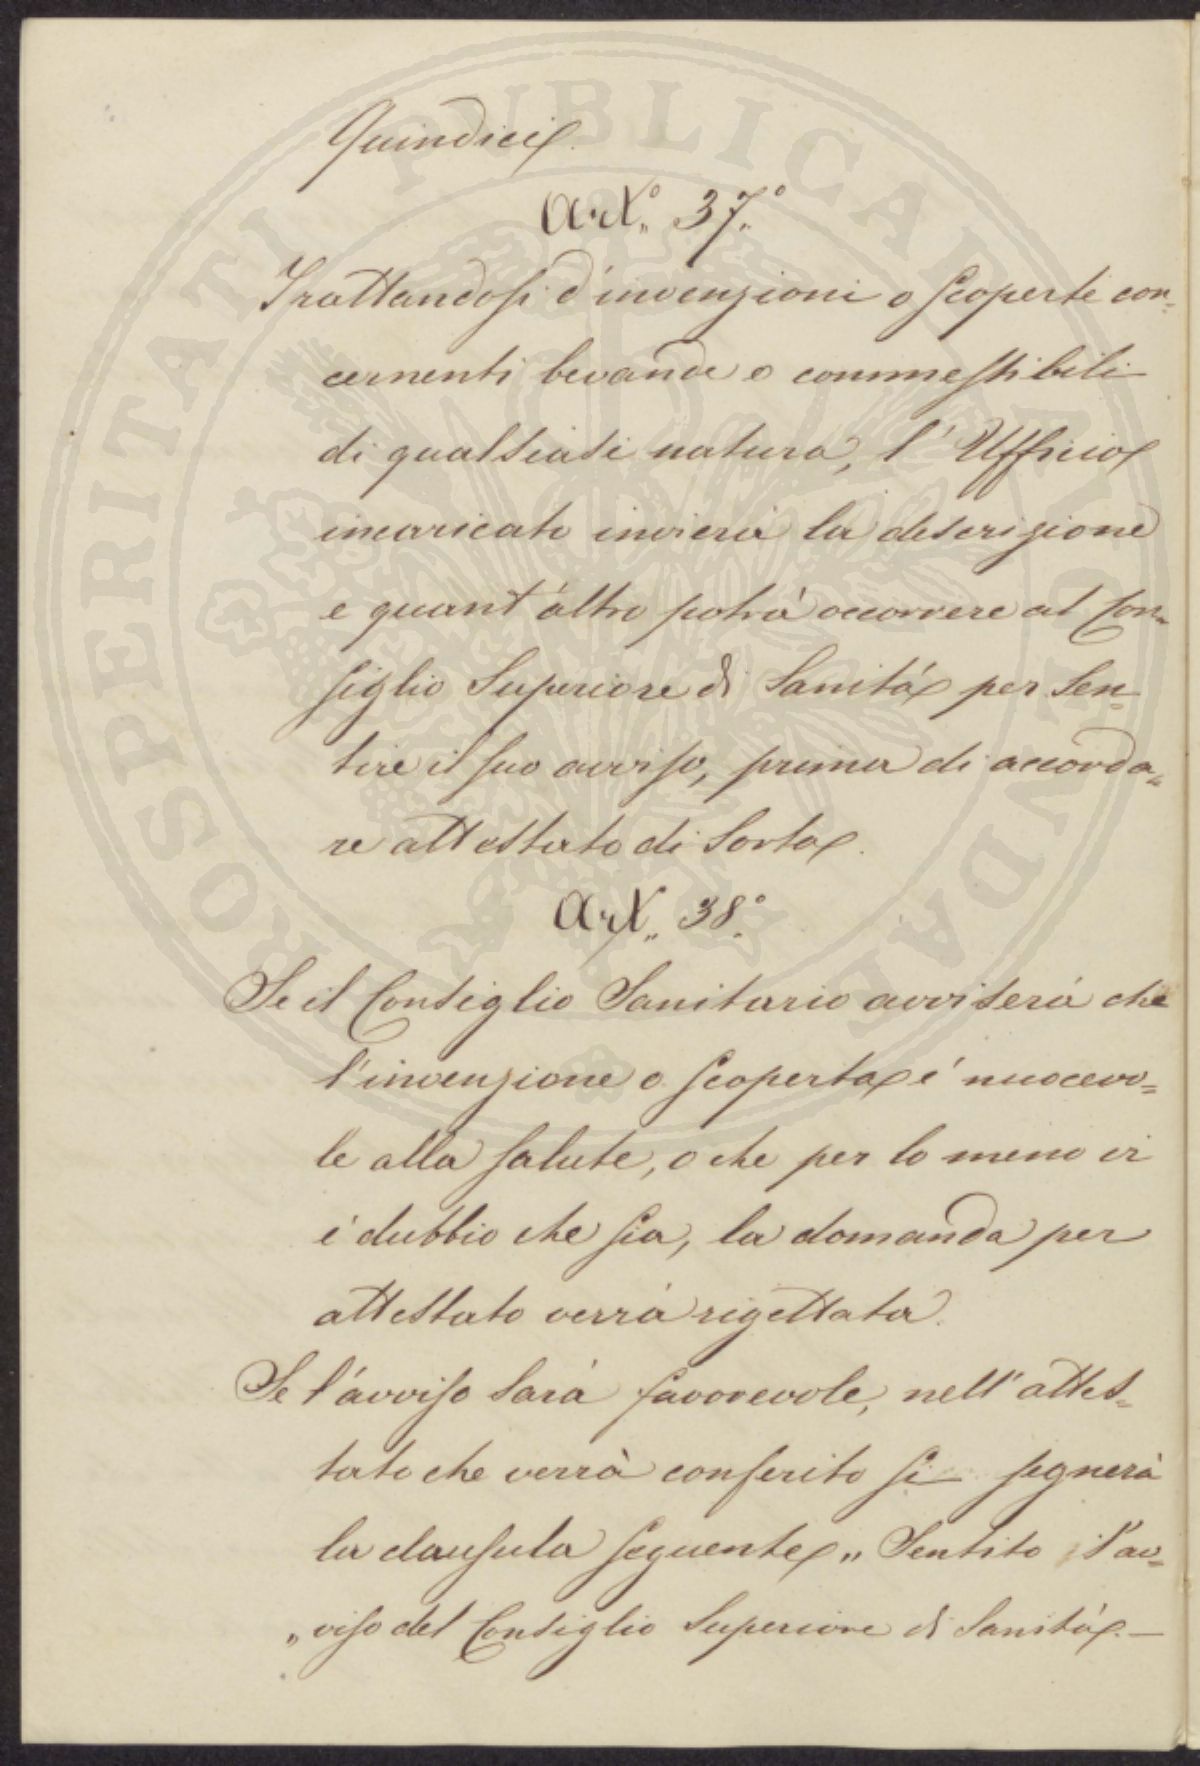 Quindici.
Art.º 37.º
Trattandosi d'invenzioni o scoperte con=
cernenti bevande o commestibili
di qualsiasi natura, l'Ufficio
incaricato invierà la descrizione
e quant'altro potrà occorrere al Con=
siglio Superiore di Sanità per sen=
tire il suo avviso, prima di accorda=
re attestato di sorta.
Art. 38.º
Se il Consiglio Sanitario avviserà che
l'invenzione o scoperta é nuocevo=
le alla salute, o che per lo meno vi
é dubbio che sia, la domanda per
attestato verrà rigettata.
Se l'avviso sarà favorevole, nell'attes=
tato che verrà conferito si segnerà
la clausula seguente „ Sentito l'av=
„ viso del Consiglio Superiore di Sanità. —
PROSPERITATI PUBLICAE AUGENDAE